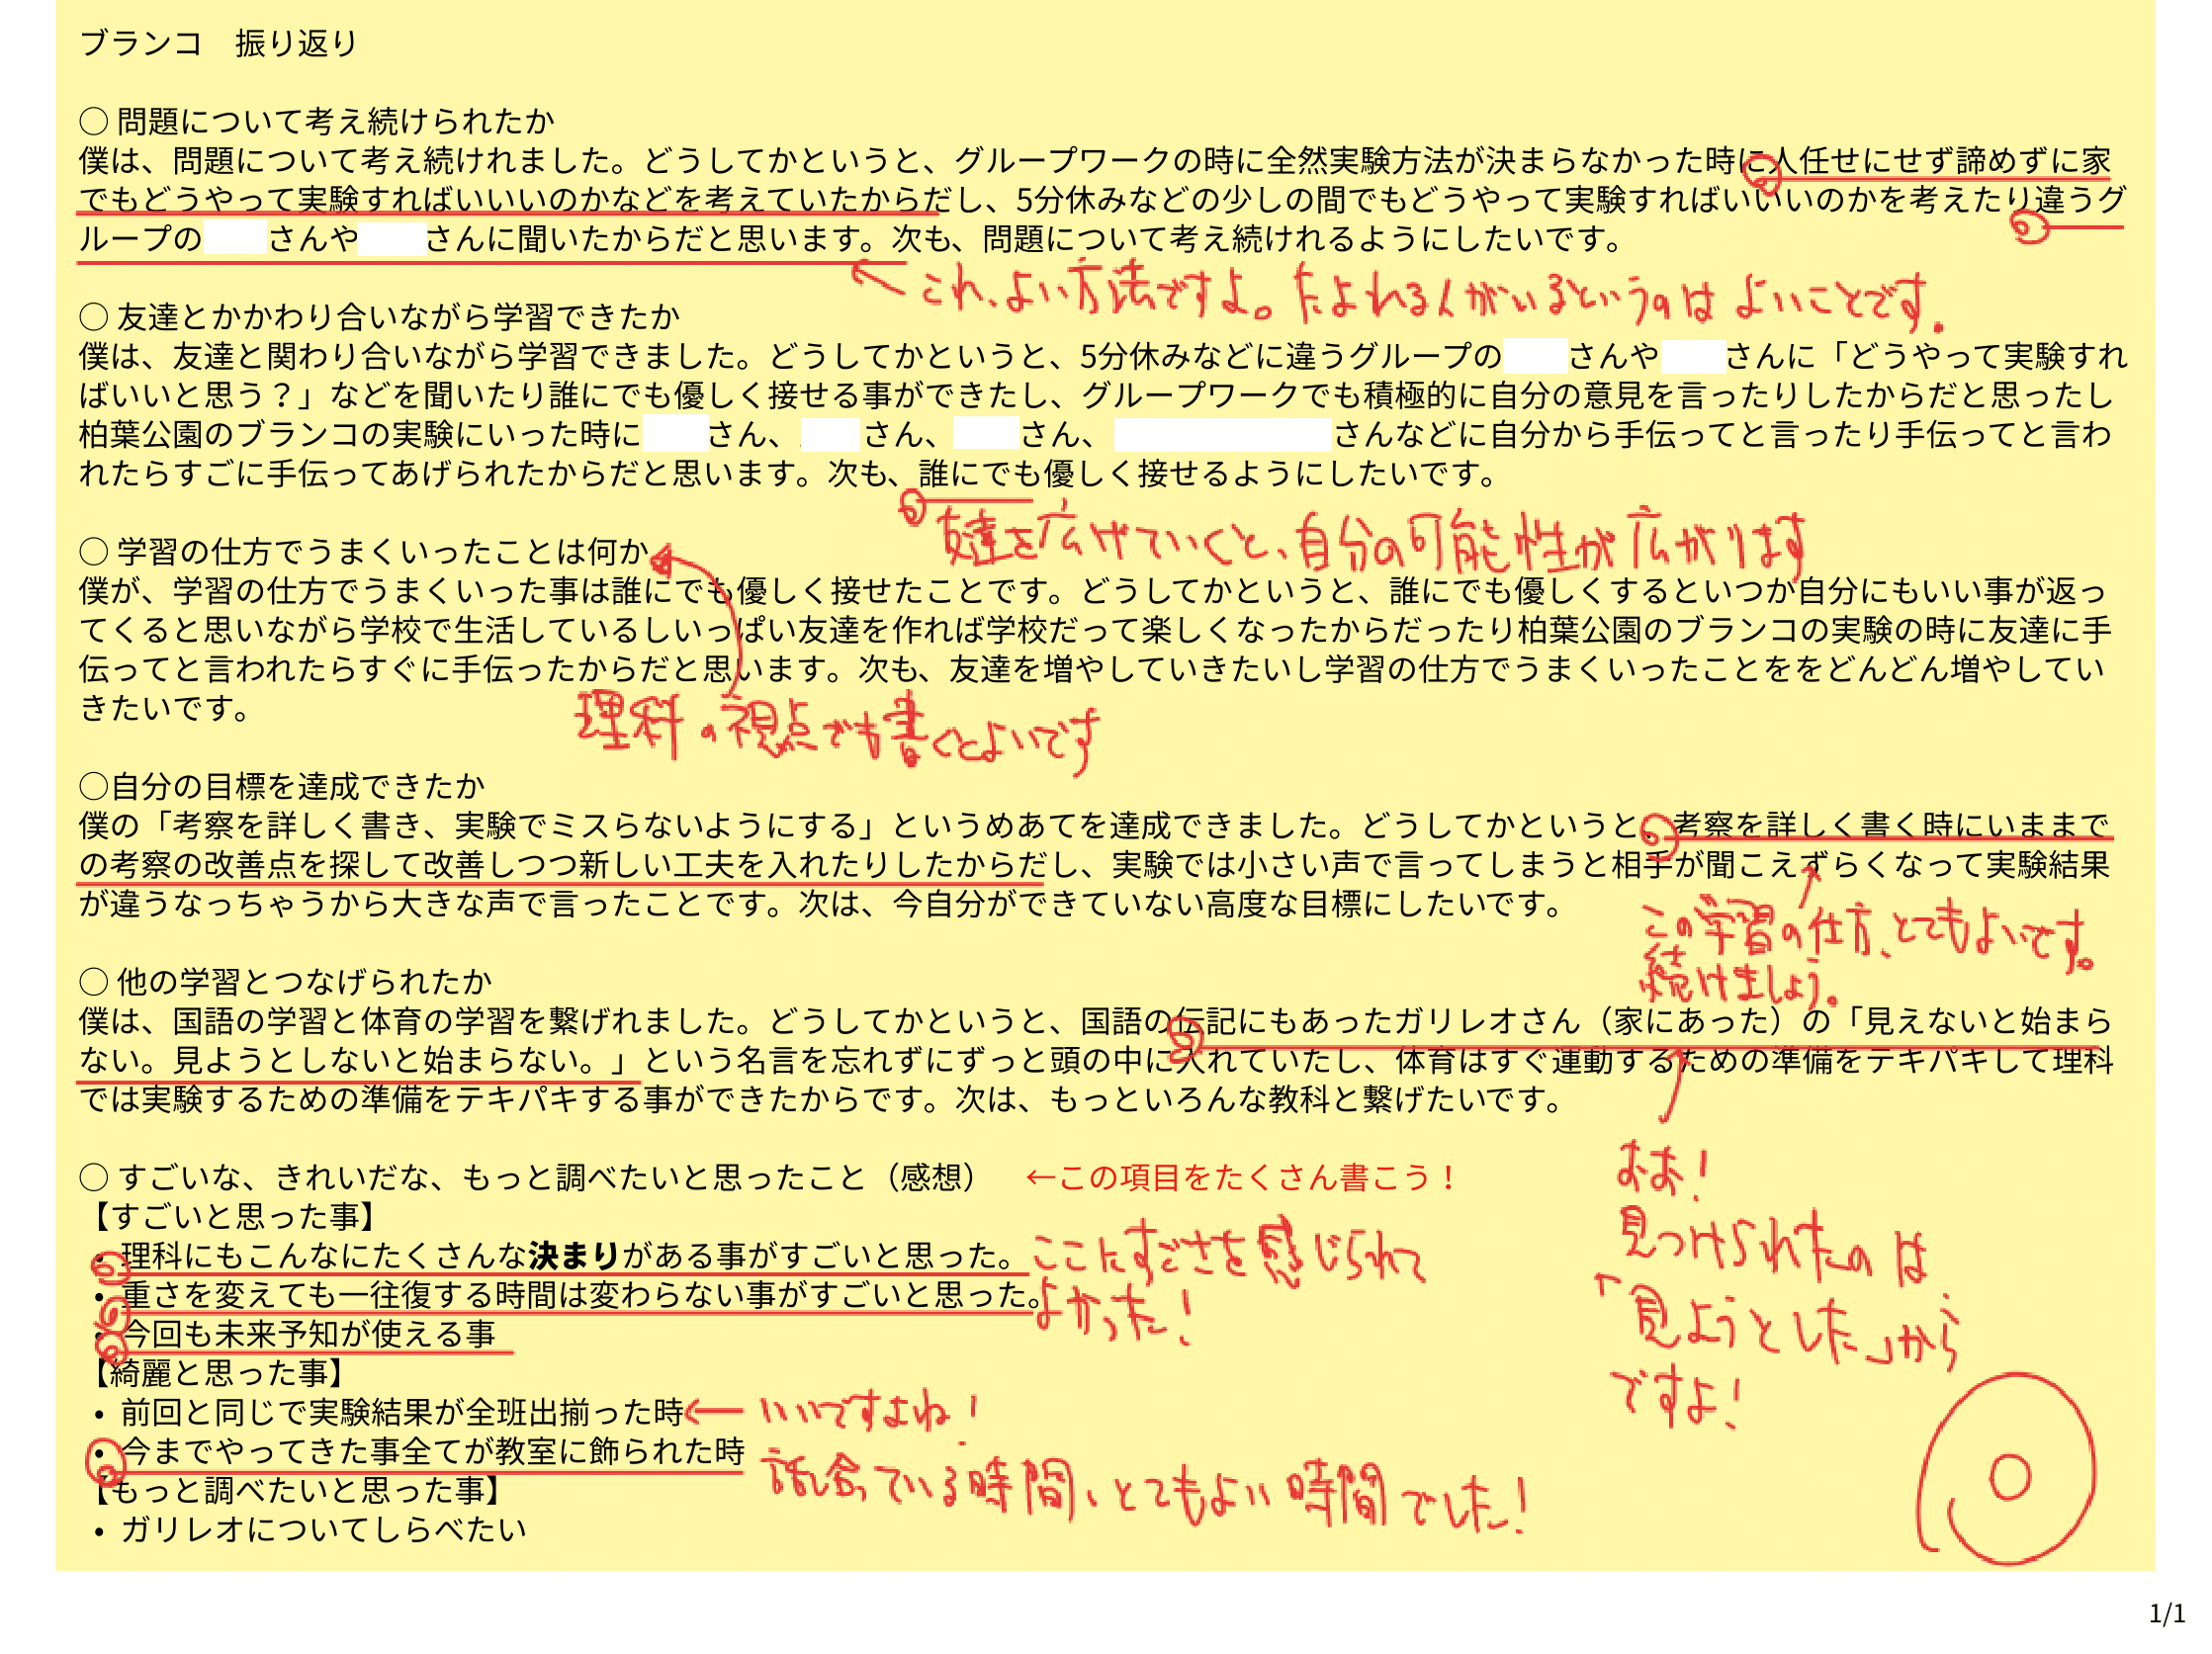 ブランコ　振り返り
◯ 問題について考え続けられたか
僕は、問題について考え続けれました。どうしてかというと、グループワークの時に全然実験方法が決まらなかった時に人任せにせず諦めずに家
でもどうやって実験すればいいいのかなどを考えていたからだし、5分休みなどの少しの間でもどうやって実験すればいいいのかを考えたり違うグ
ループの　　さんや　　さんに聞いたからだと思います。次も、問題について考え続けれるようにしたいです。
←これ、よい方法ですよ。たよれる人がいるというのはよいことです.
◯ 友達とかかわり合いながら学習できたか
僕は、友達と関わり合いながら学習できました。どうしてかというと、5分休みなどに違うグループの　　さんや　　さんに「どうやって実験すれ
ばいいと思う？」などを聞いたり誰にでも優しく接せる事ができたし、グループワークでも積極的に自分の意見を言ったりしたからだと思ったし
柏葉公園のブランコの実験にいった時に　　さん、　　さん、　　さん、　　　　　　さんなどに自分から手伝ってと言ったり手伝ってと言わ
れたらすごに手伝ってあげられたからだと思います。次も、誰にでも優しく接せるようにしたいです。
友達を広げていくと、自分の可能性が広がります
◯ 学習の仕方でうまくいったことは何か
僕が、学習の仕方でうまくいった事は誰にでも優しく接せたことです。どうしてかというと、誰にでも優しくするといつか自分にもいい事が返っ
てくると思いながら学校で生活しているしいっぱい友達を作れば学校だって楽しくなったからだったり柏葉公園のブランコの実験の時に友達に手
伝ってと言われたらすぐに手伝ったからだと思います。次も、友達を増やしていきたいし学習の仕方でうまくいったことををどんどん増やしてい
きたいです。
理科の視点でも書くとよいです
◯自分の目標を達成できたか
僕の「考察を詳しく書き、実験でミスらないようにする」というめあてを達成できました。どうしてかというと、考察を詳しく書く時にいままで
の考察の改善点を探して改善しつつ新しい工夫を入れたりしたからだし、実験では小さい声で言ってしまうと相手が聞こえずらくなって実験結果
が違うなっちゃうから大きな声で言ったことです。次は、今自分ができていない高度な目標にしたいです。
この学習の仕方、とてもよいです。
続けましょう。
◯ 他の学習とつなげられたか
僕は、国語の学習と体育の学習を繋げれました。どうしてかというと、国語の伝記にもあったガリレオさん（家にあった）の「見えないと始まら
ない。見ようとしないと始まらない。」という名言を忘れずにずっと頭の中に入れていたし、体育はすぐ運動するための準備をテキパキして理科
では実験するための準備をテキパキする事ができたからです。次は、もっといろんな教科と繋げたいです。
おお!
見つけられたのは
「見ようとした」から
ですよ!
◯ すごいな、きれいだな、もっと調べたいと思ったこと（感想）　←この項目をたくさん書こう！
【すごいと思った事】
• 理科にもこんなにたくさんな決まりがある事がすごいと思った。
• 重さを変えても一往復する時間は変わらない事がすごいと思った。
ここにすごさを感じられて
よかった!
• 今回も未来予知が使える事
【綺麗と思った事】
• 前回と同じで実験結果が全班出揃った時
← いいですよね!
• 今までやってきた事全てが教室に飾られた時
話し合っている時間、とてもよい時間でした!
【もっと調べたいと思った事】
• ガリレオについてしらべたい
1/1